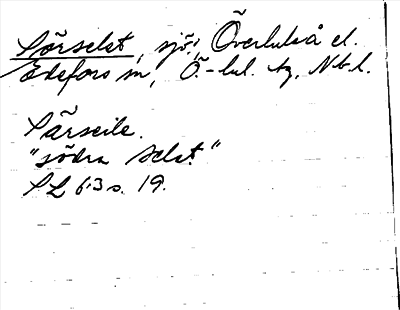 Sörselet, sjö i Överluleå el.
Edefors sn, Ö.-lul. tg, Nb.l.
Särseile.
"södra selet"
SL 63 s. 19.